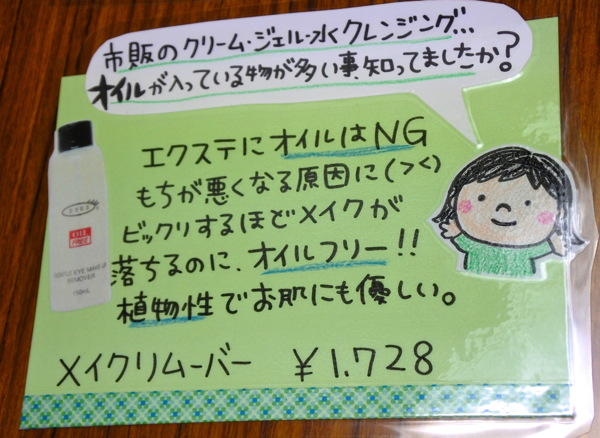 市販のクリーム・ジェル・水クレンジング…
オイルが入っている物が多い事、知ってましたか?
エクステにオイルはNG
もちが悪くなる原因に(><)
ビックリするほどメイクが
落ちるのに、オイルフリー!!
植物性でお肌にも優しい。
メイクリムーバー ¥1.728
GENTLE EYE MAKE UP
REMOVER
150mL